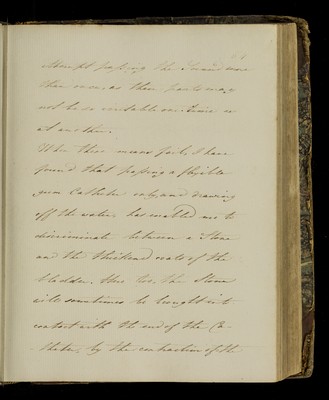 attempt passing the Sound more
than once, as these parts may
not be so irritable one time as
at another.
When these means fail, I have
found that passing a flexible
gum Catheter only, and drawing
off the water has enabled me to
discriminate between a Stone
and the thickened coats of the
bladder. Here too, the Stone
will sometimes be brought into
contact with the end of the Ca-
-theter, by the contraction of the